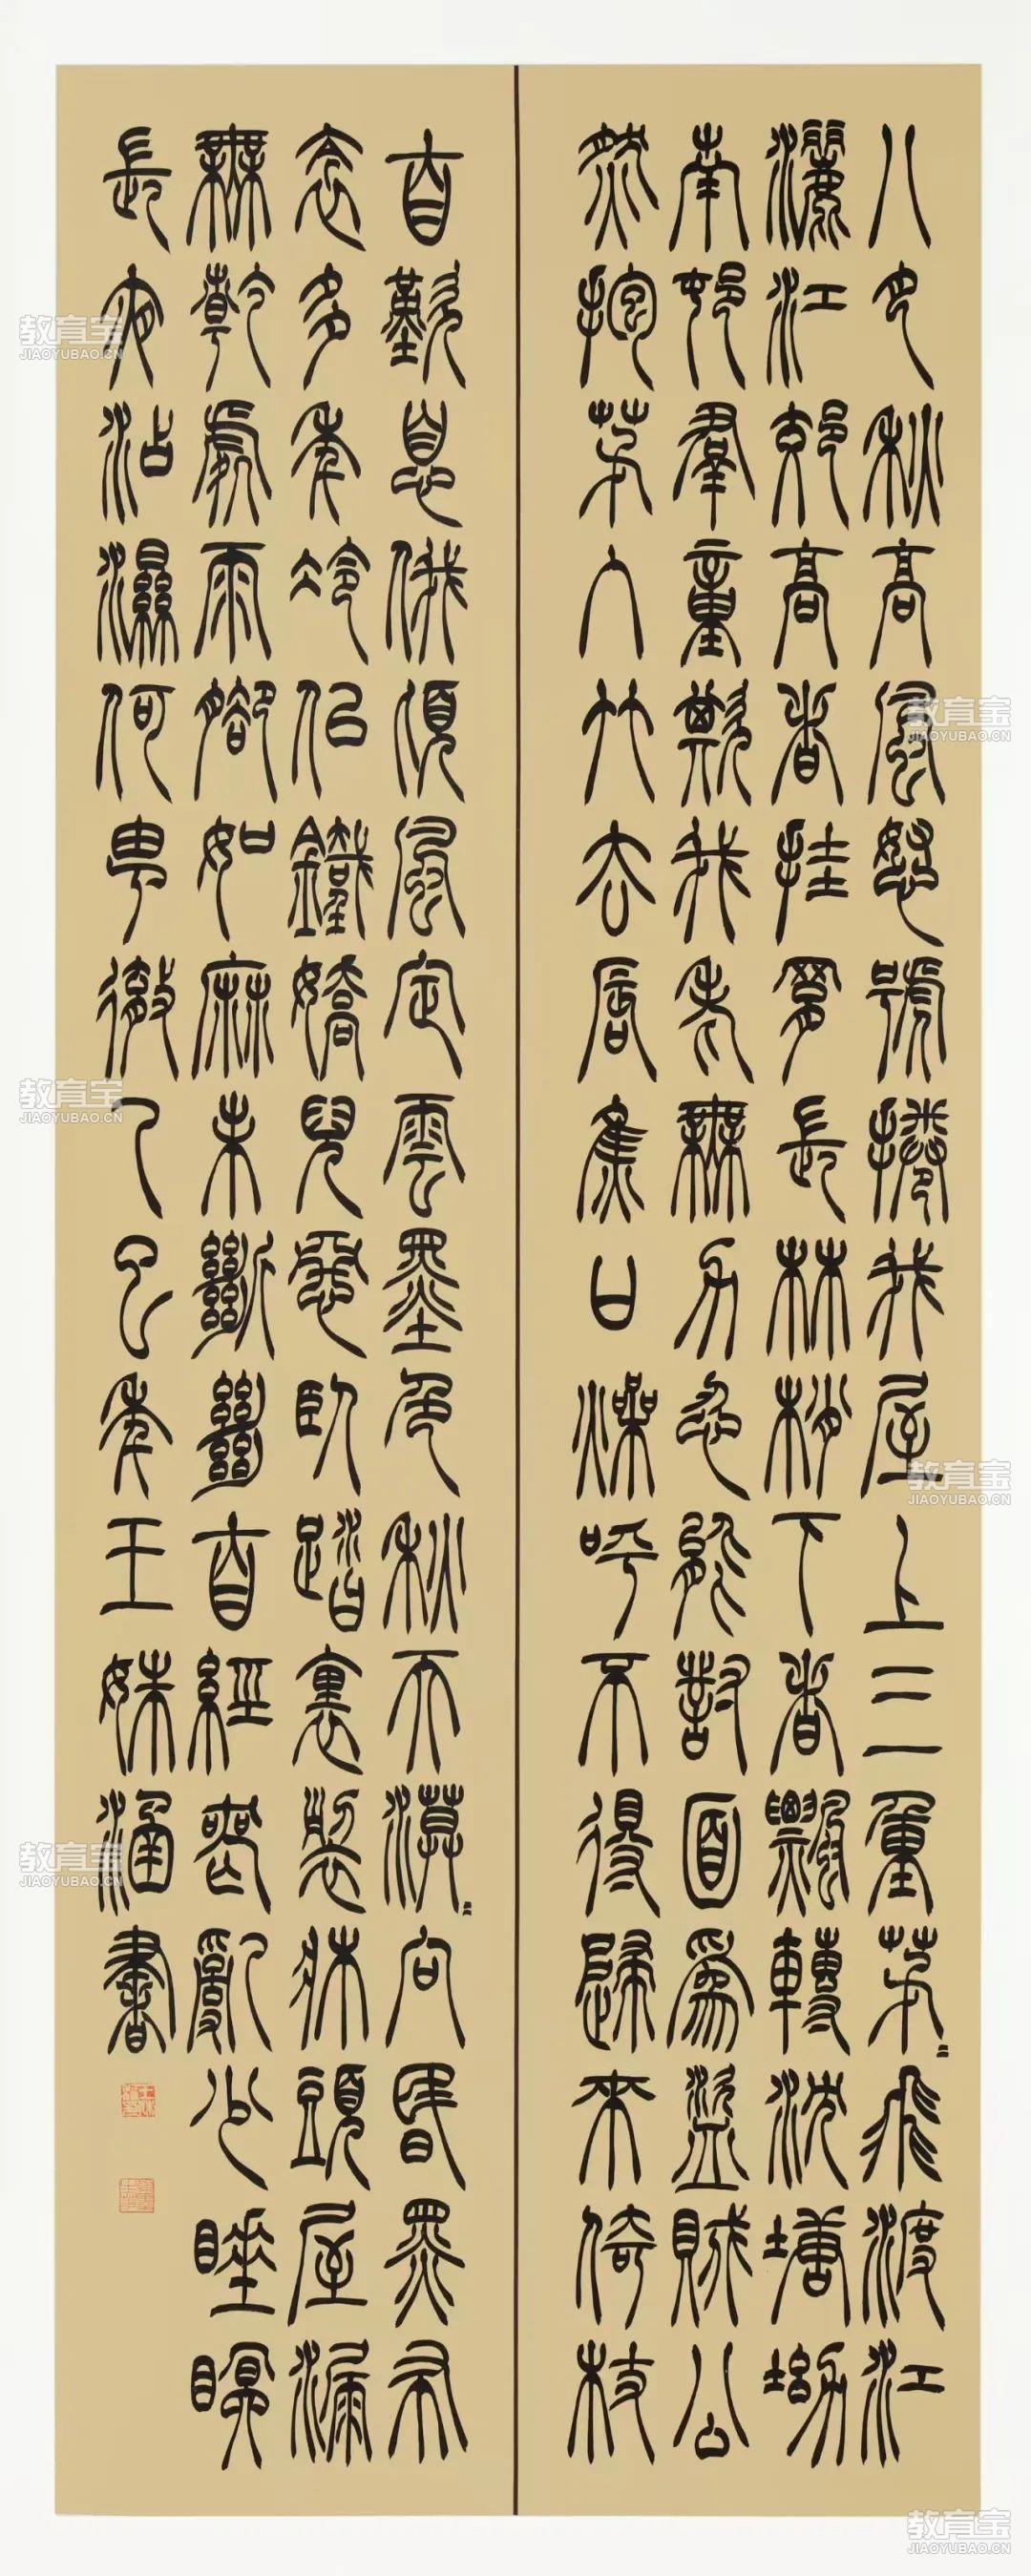 八月秋高風怒號捲我屋上三重茅〻飛渡江
灑江郊高者挂罥長林梢下者飄轉沈塘坳
南邨羣童欺我老無力忍能對面為盜賊公
然抱茅入竹去脣焦口燥呼不得歸來倚杖
自歎息俄頃風定雲墨色秋天漠〻向昏黑布
衾多年冷似鐵嬌兒惡臥踏裏裂牀頭屋漏
無乾處雨腳如麻未斷絕自經喪亂少睡眠
長夜沾濕何由徹乙巳年王妹涵書
教育宝
JIAOYUBAO.CN
教育宝
JIAOYUBAO.CN
教育宝
JIAOYUBAO.CN
教育宝
JIAOYUBAO.CN
教育宝
JIAOYUBAO.CN
教育宝
JIAOYUBAO.CN